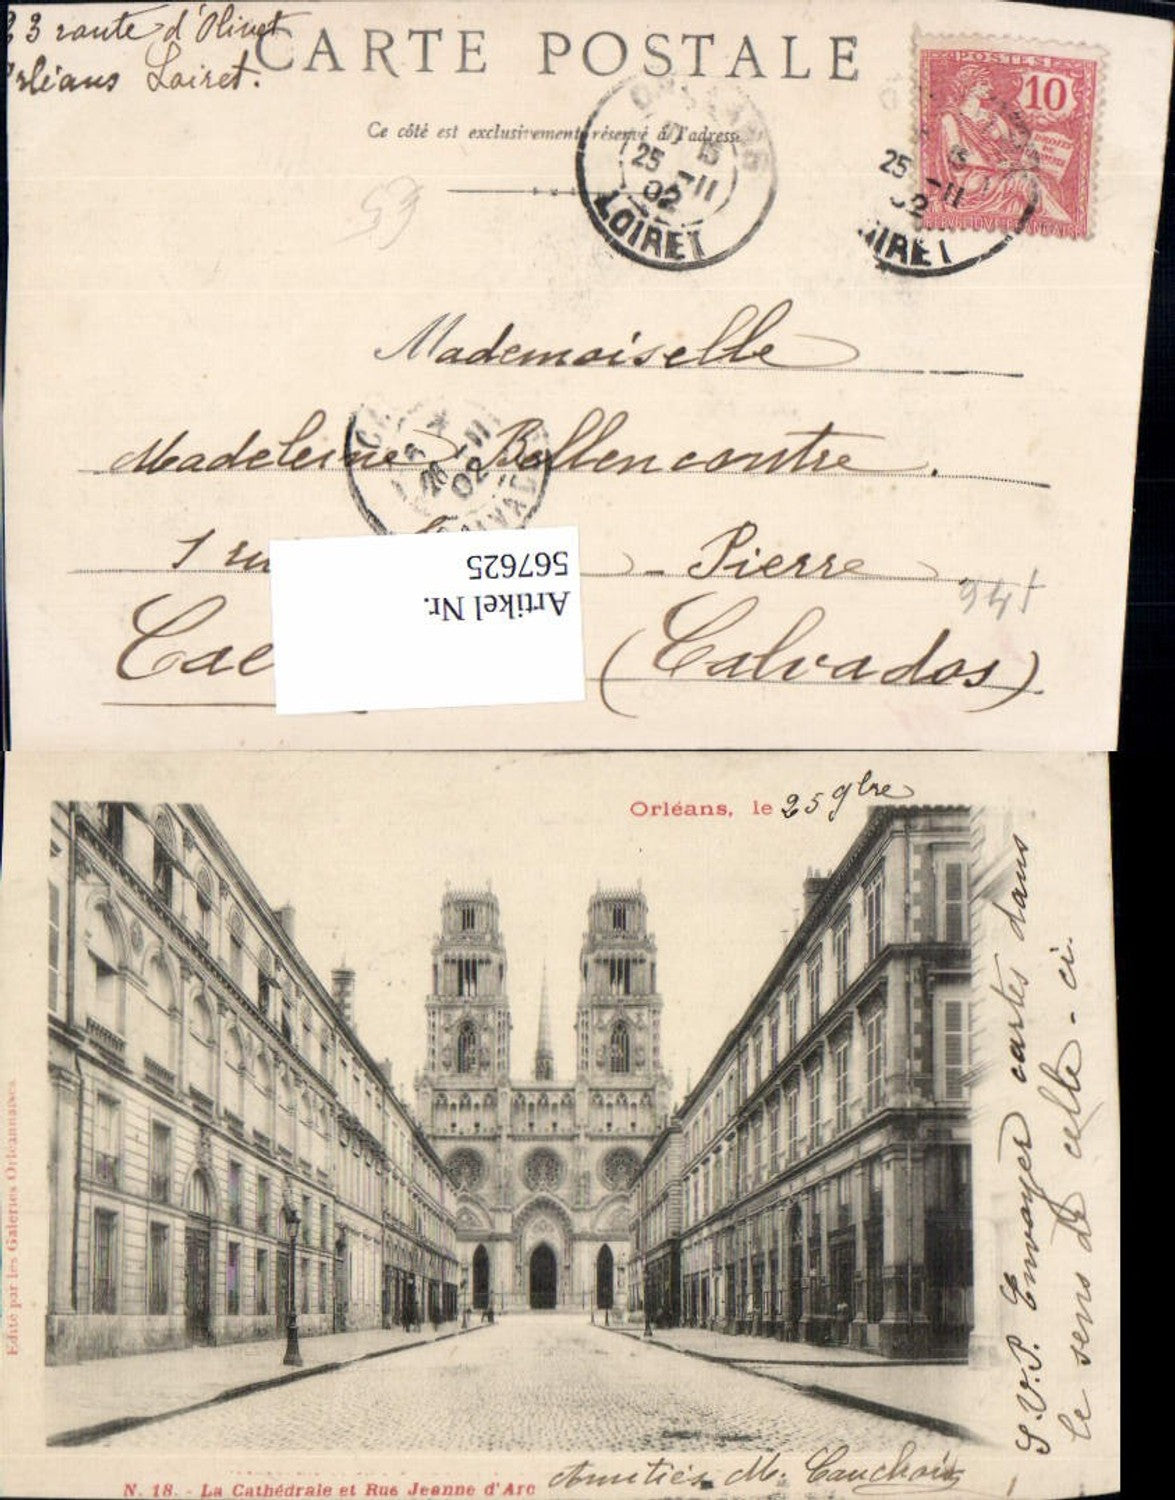 23 route d'Olivet
Orléans Loiret.
CARTE POSTALE
Ce côté est exclusivement réservé à l'adresse
POSTES
10
RÉPUBLIQUE FRANÇAISE
25 -11
02
LOIRET
25 -11
02
LOIRET
53
Mademoiselle
Madeleine Bellencontre.
26 -11
02
CALVADOS
1 ru
- Pierre
945
Cae
(Calvados)
Artikel Nr.
567625
Orléans, le 25 9bre
S.V.P. Envoyer cartes dans
le sens de celle-ci.
Edité par les Galeries Orléannaises.
N. 18. - La Cathédrale et Rue Jeanne d'Arc
Amitiés M. Cauchois